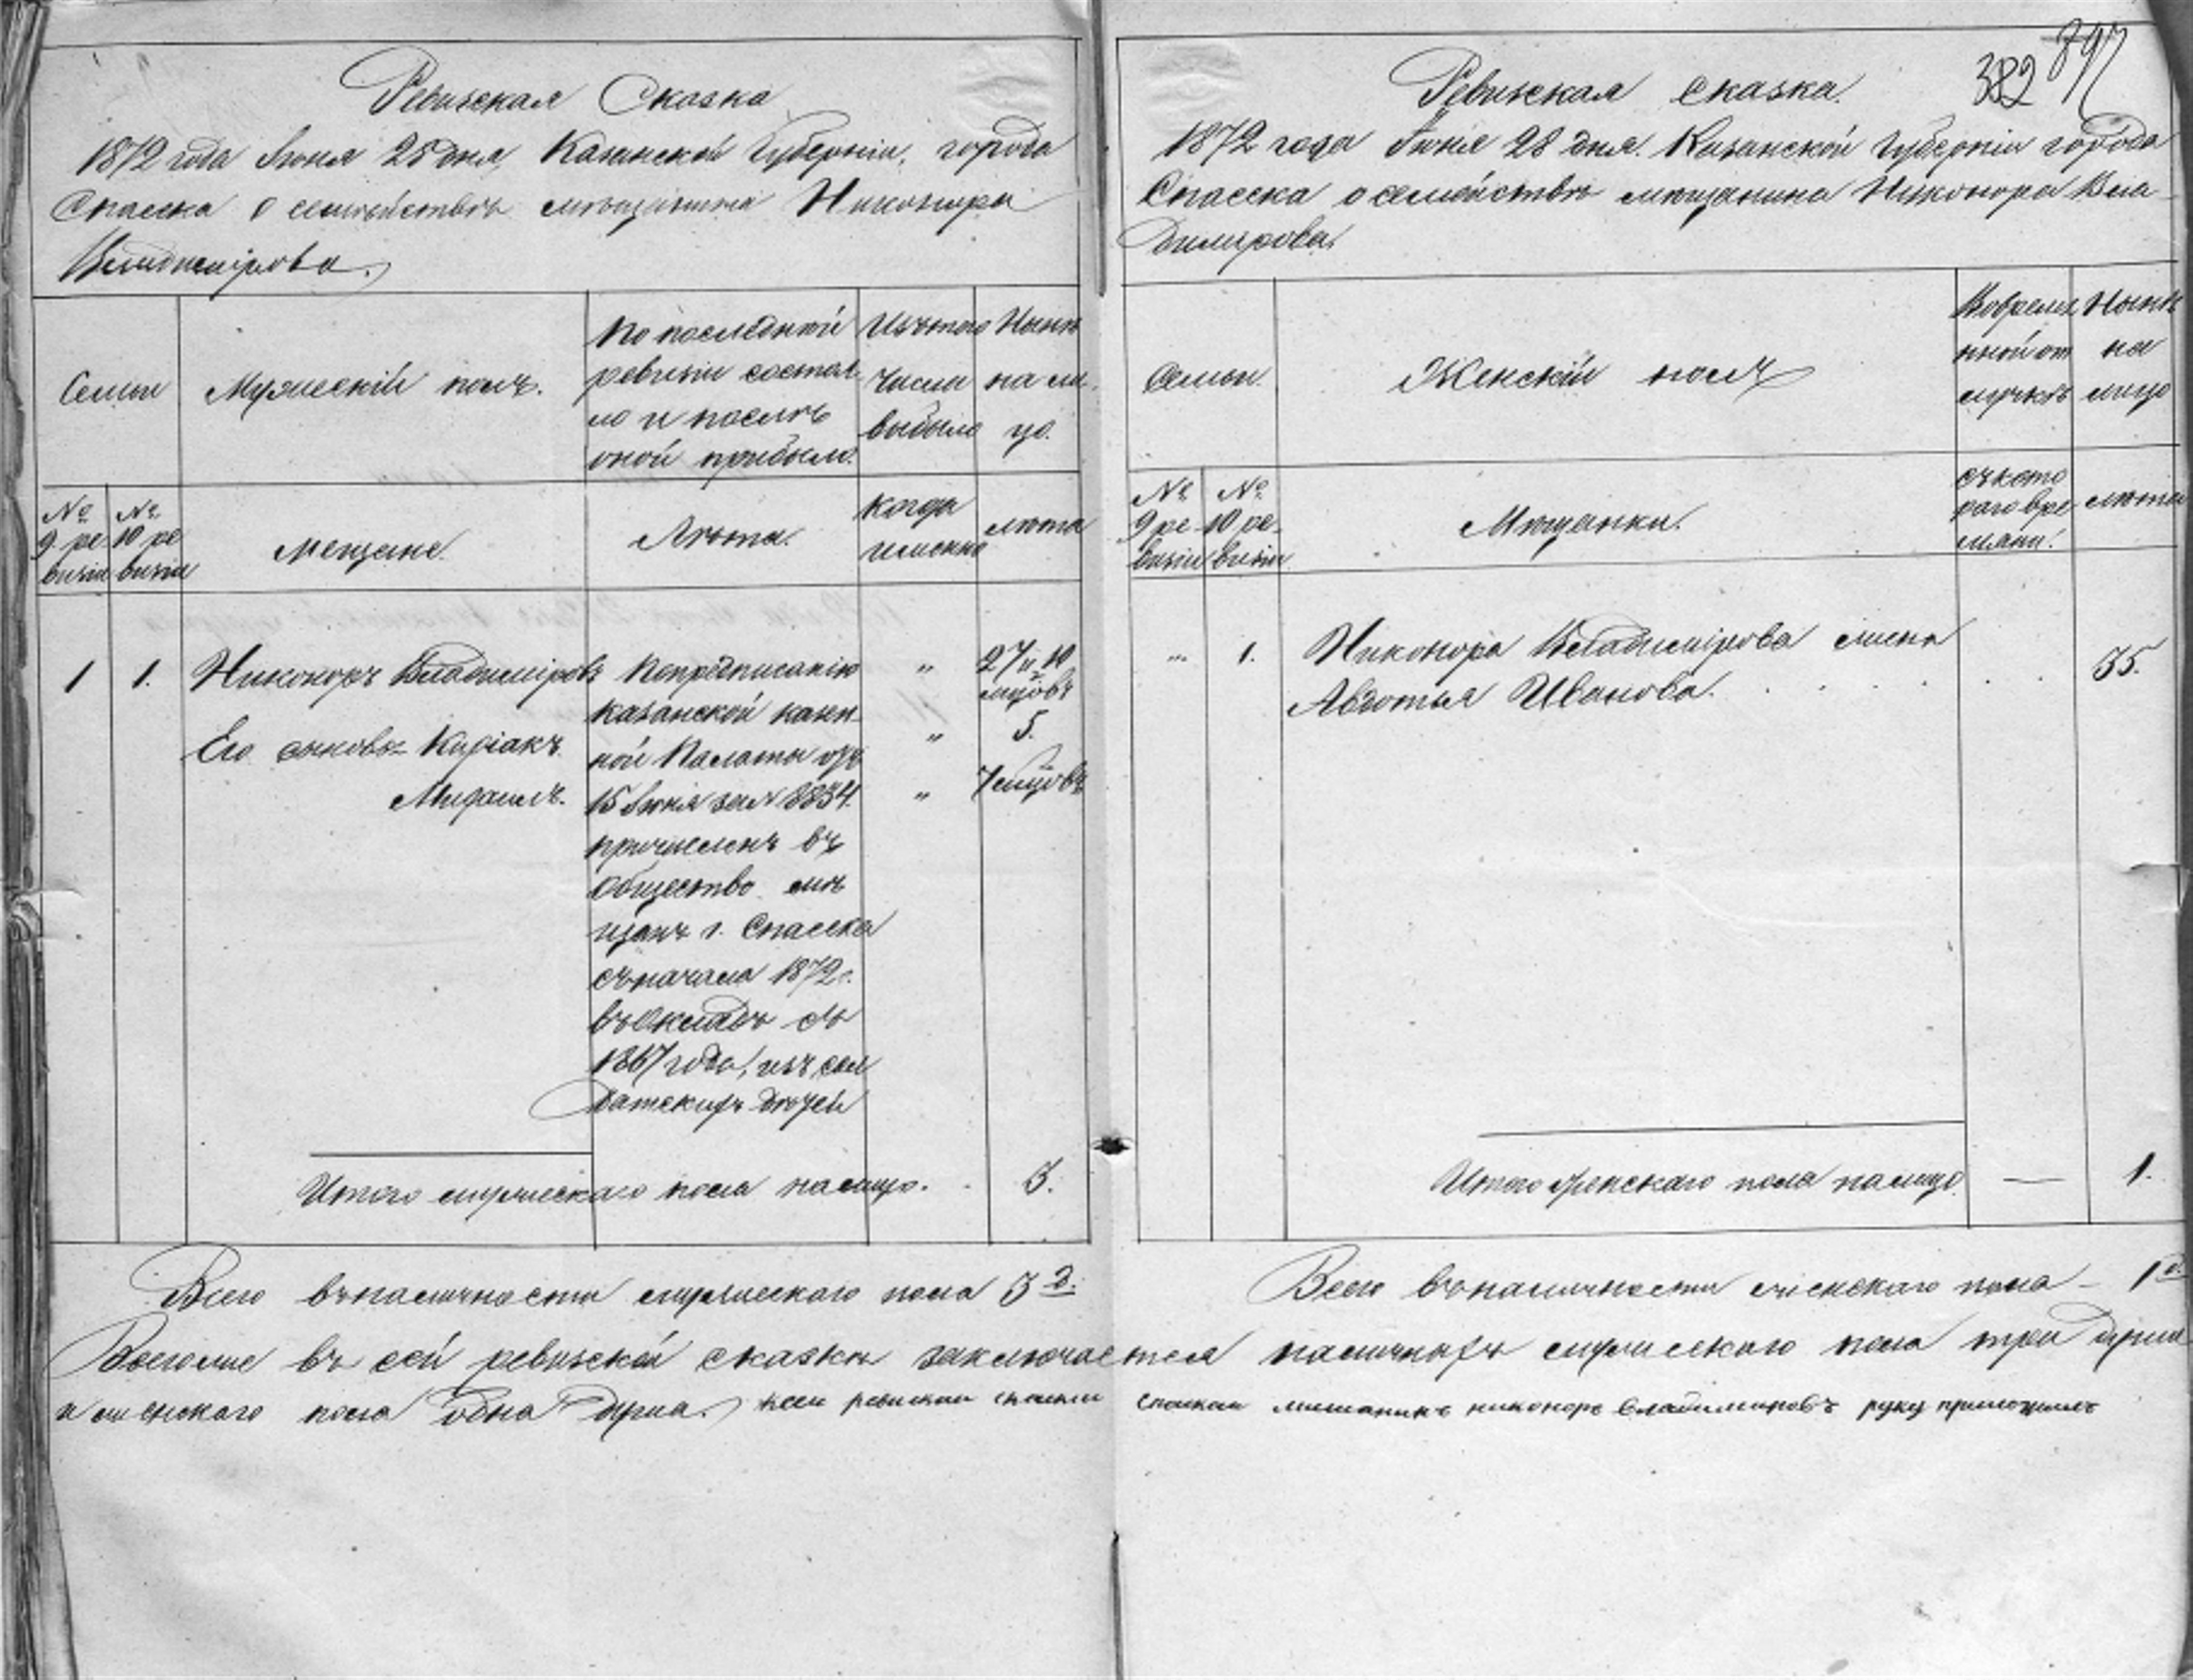 Ревизская Сказка
1872 года Июня 28 дня, Казанской Губерніи, города
Спасска о семействѣ мѣщанина Никонора
Владимірова.
Семьи
Мужескій полъ.
По последней
ревизіи состоя
ло и послѣ
оной прибыло.
Изъ того
числа
выбыло
Нынѣ
на ли
цо.
№ 9 ре
визіи
№ 10 ре
визіи
Мещане.
Лѣта.
Когда
именно
лѣта
1 1. Никоноръ Владиміровъ
Его сыновья Киріакъ
Михаилъ.
По предписанію
Казанской казен
ной Палаты отъ
15 Июня за № 3834
причисленъ въ
общество мѣ
щанъ г. Спасска
съ начала 1872 г.
въ окладъ съ
1867 года, изъ сол
датскихъ дѣтей
„ 27 и 10
мцовъ
„ 5.
„ 7 мцовъ
Итого мужескаго пола на лицо. 3.
Всего въ наличности мужескаго пола 3 д.
382 397
Ревизская сказка.
1872 года Июня 28 дня. Казанской Губерніи города
Спасска о семействѣ мѣщанина Никонора Вла
димирова.
Семьи.
Женскій полъ
Во времен
ной от
лучкѣ
Нынѣ
на
лицо
№ 9 ре
визіи
№ 10 ре
визіи
Мѣщанки.
съ кото
раго вре
мени.
лѣта
„ 1. Никонора Владимірова жена
Авдотья Иванова. 35.
Итого женскаго пола на лицо — 1.
Всего въ наличности женскаго пола – 1 д.
Всего же въ сей ревизской сказкѣ заключается наличныхъ мужескаго пола три души
и женскаго пола одна душа. ксеи ревискои скаски спаскаи мишанинъ никоноръ владимировъ руку приложилъ